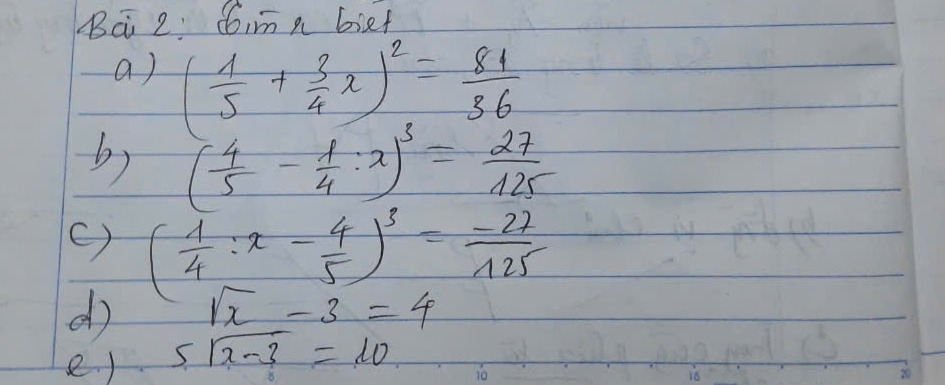 Bài 2: Tìm x biết
a) (1/5 + 3/4 x)² = 81/36
b) (4/5 - 1/4 : x)³ = 27/125
c) (1/4 : x - 4/5)³ = -27/125
d) √x - 3 = 4
e) 5√(x-3) = 10